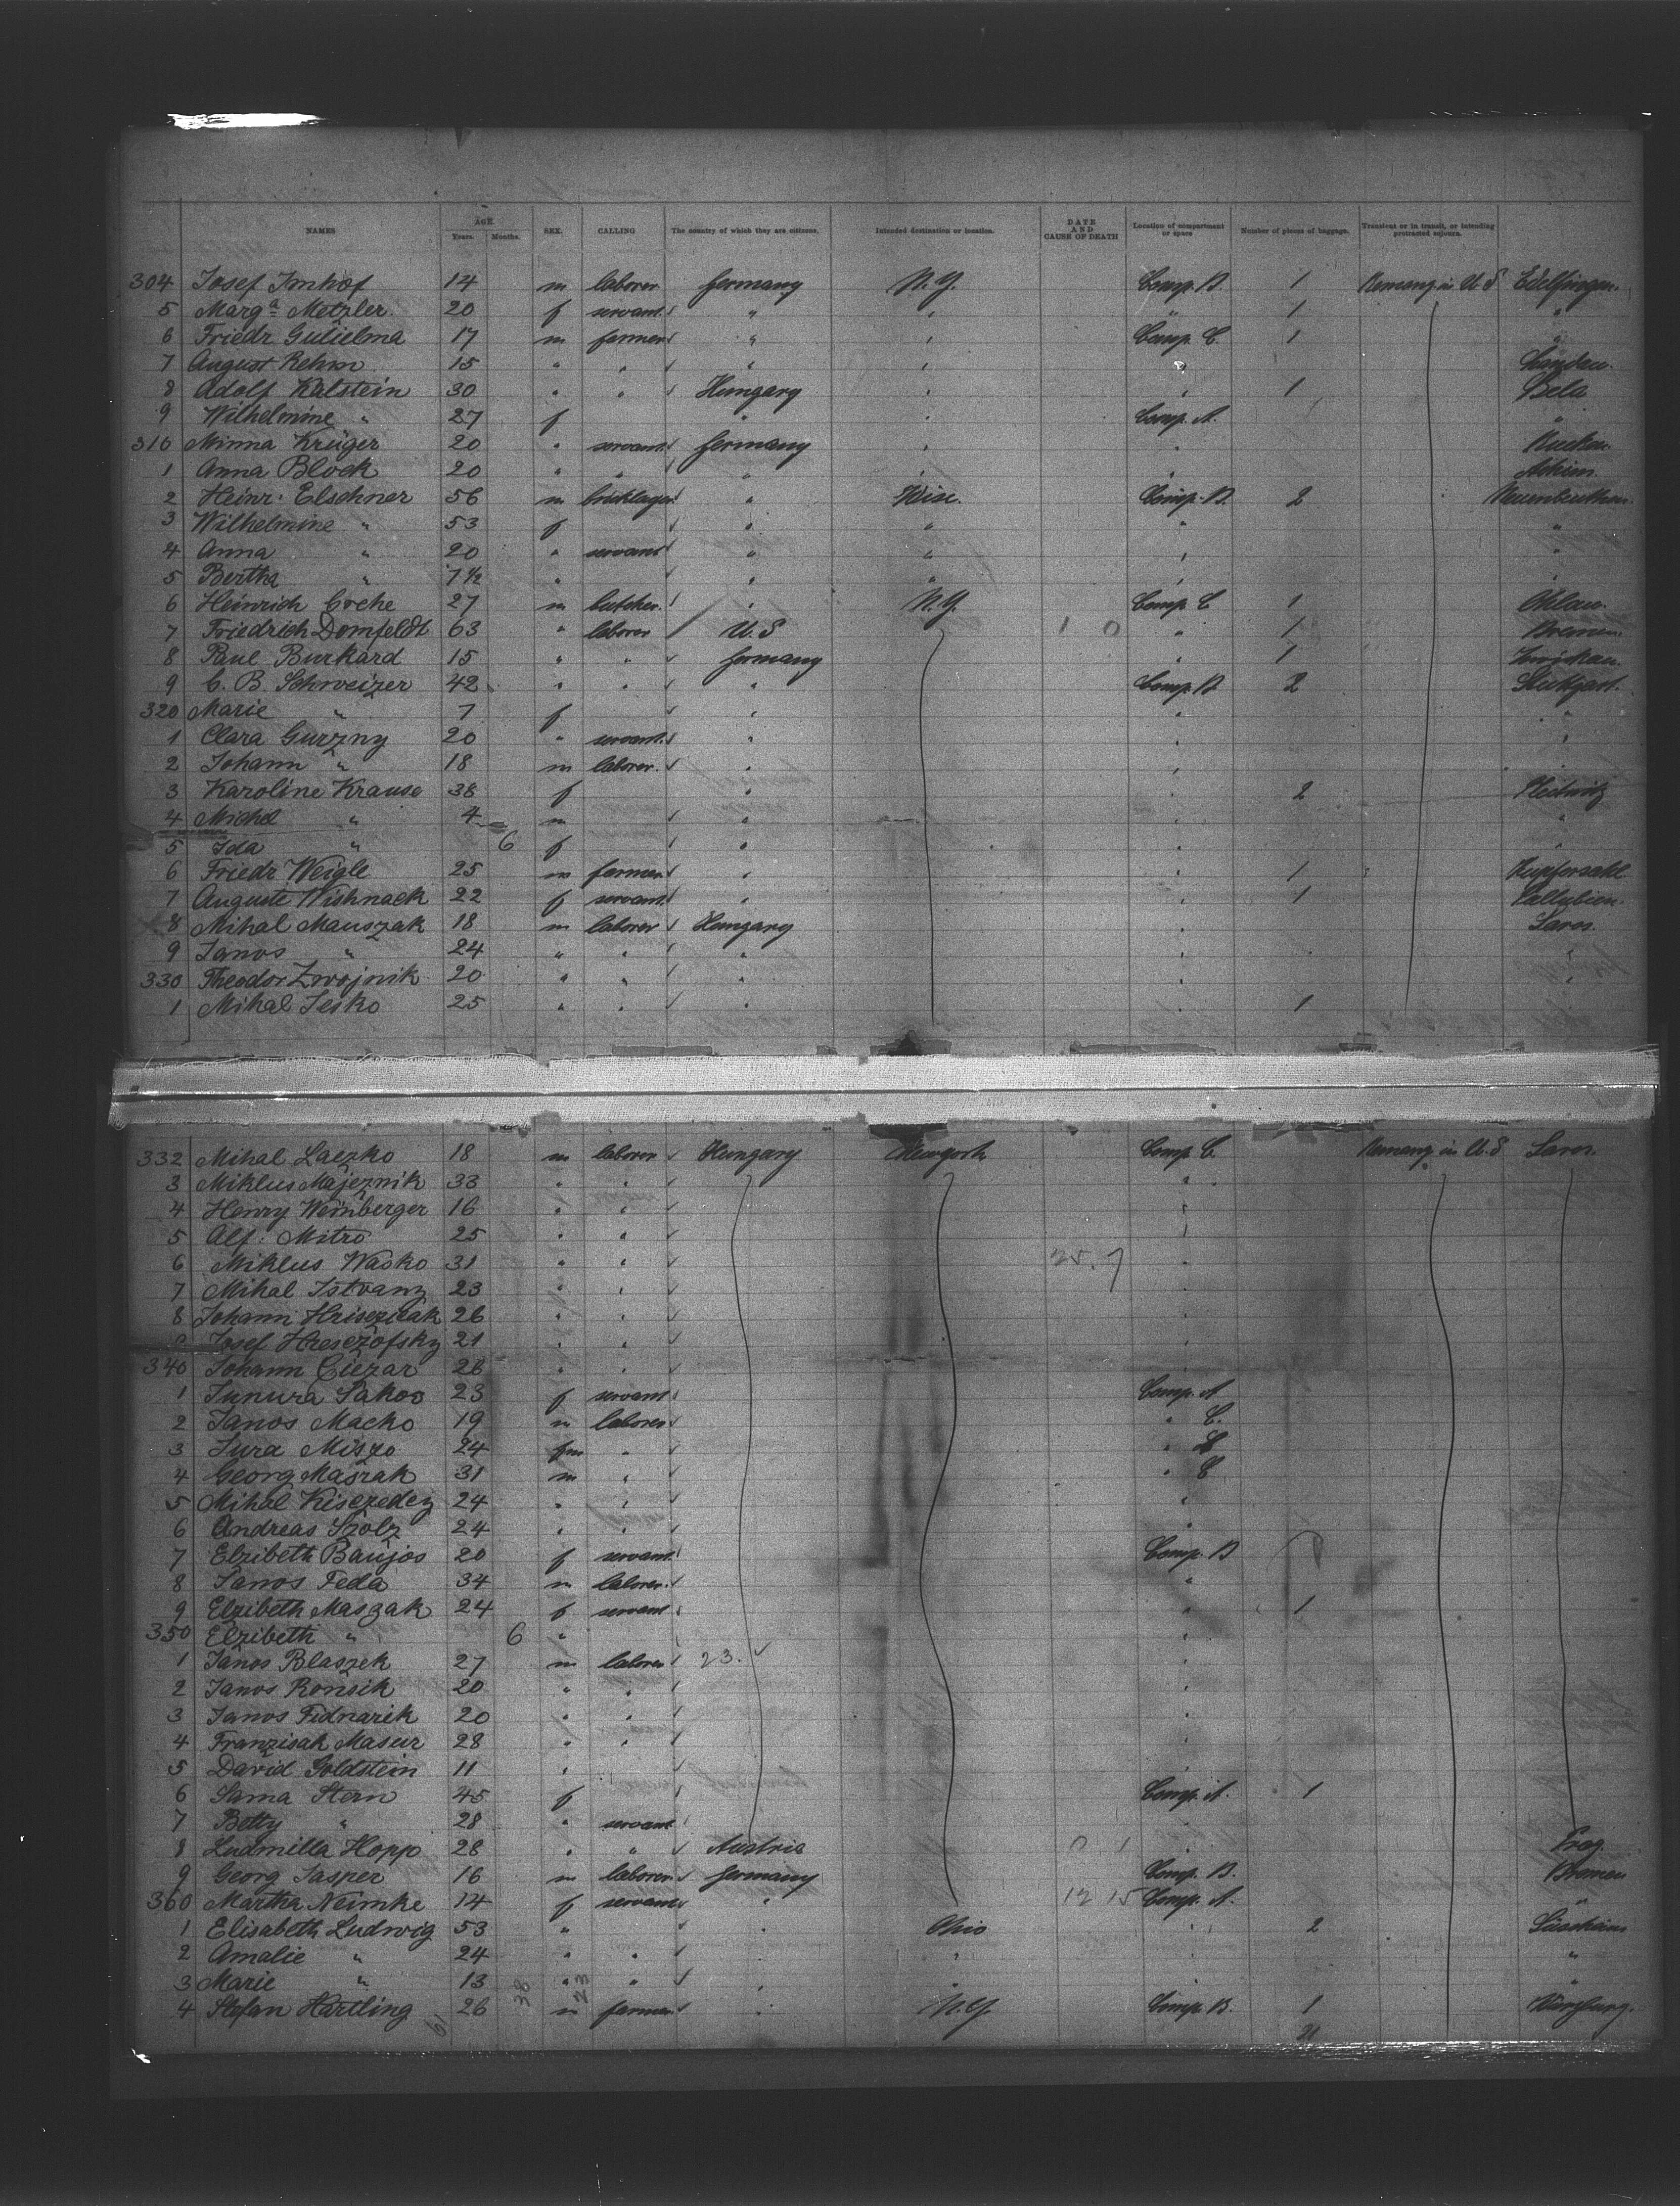 NAMES AGE Years. Months. SEX. CALLING The country of which they are citizens. Intended destination or location. DATE AND CAUSE OF DEATH Location of compartment or space Number of pieces of baggage. Transient or in transit, or intending protracted sojourn.
304 Josef Imhof 14 m laborer Germany N.Y. Comp. B. 1 Remang in U.S Edelfingen.
5 Marga Metzler. 20 f servant " " " 1 "
6 Friedr Gulielma 17 m farmer " " Comp. C. 1 "
7 August Rehm 15 " " " " " Landau.
8 Adolf Kalstein 30 " " Hungary " " 1 Bela
9 Wilhelmine " 27 f " " Comp. A. "
310 Minna Krüger 20 " servant Germany " "
1 Anna Block 20 " " " " " Achim.
2 Heinr. Elschner 56 m bricklayer " Wisc. Comp. B. 2
3 Wilhelmine " 53 f " " " "
4 Anna " 20 " servant " " " "
5 Bertha " 7 1/2 " " " " "
6 Heinrich Coche 27 m butcher. " N.Y. Comp. C 1 Ohlau.
7 Friedrich Domfeldt 63 " laborer U.S 1 0 " 1 Bremen.
8 Paul Burkard 15 " " Germany " 1 Zwickau.
9 C. B. Schweizer 42 " " " Comp. B 2 Stuttgart.
320 Marie " 7 f " " "
1 Clara Gurzny 20 " servant. " " "
2 Johann " 18 m laborer. " " "
3 Karoline Krause 38 f " " 2
4 Michel " 4 m " "
5 Ida " 6 f " " "
6 Friedr Weigle 25 m farmer " " 1 Kupferzell
7 Auguste Wishnack 22 f servant " " 1
8 Mihal Mauszak 18 m laborer Hungary " Saros.
9 Janos " 24 " " " " "
330 Theodor Zwojnik 20 " " " " "
1 Mihal Jesko 25 " " " " 1
332 Mihal Laczko 18 m laborer Hungary Newyork Comp C. Remang in U.S Saros.
3 Miklus Majeznik 33 " " "
4 Henry Weinberger 16 " " "
5 Alf. Mitro 25 " " "
6 Miklus Wasko 31 " " 25. 7 "
7 Mihal Istvanz 23 " " "
8 Johann Hriszieak 26 " " "
Josef Hresezofsky 21 " " "
340 Johann Ciezar 26 " " "
1 Junura Sakos 23 f servant Comp. A
2 Janos Macko 19 m laborer " C.
3 Jura Miszo 24 fm " "
4 Georg Maszak 31 m " " C
5 Mihal Kisezedez 24 " " "
6 Andreas Szolz 24 " " "
7 Elzibeth Baujos 20 f servant Comp. B
8 Janos Feda 34 m laborer. "
9 Elzibeth Maszak 24 f servant " 1
350 Elzibeth " 6 " "
1 Janos Blaszek 27 m laborer 23. "
2 Janos Ronsik 20 " " "
3 Janos Fidnarik 20 " " "
4 Franzisak Masur 28 " " "
5 David Goldstein 11 " "
6 Sama Stern 45 f Comp. A. 1
7 Betty " 28 " servant "
8 Ludmilla Hopp 28 " " Austria 0 1 " Prag.
9 Georg Jasper 16 m laborer Germany Comp. B. Bremen
360 Martha Neimke 14 f servant " 12 15 Comp. A. "
1 Elisabeth Ludwig 53 " " Ohio " 2
2 Amalie " 24 " " " " " "
3 Marie " 13 38 " 23 " " " " "
4 Stefan Härtling 26 m farmer " N.Y Comp. B. 1 Würzburg.
21